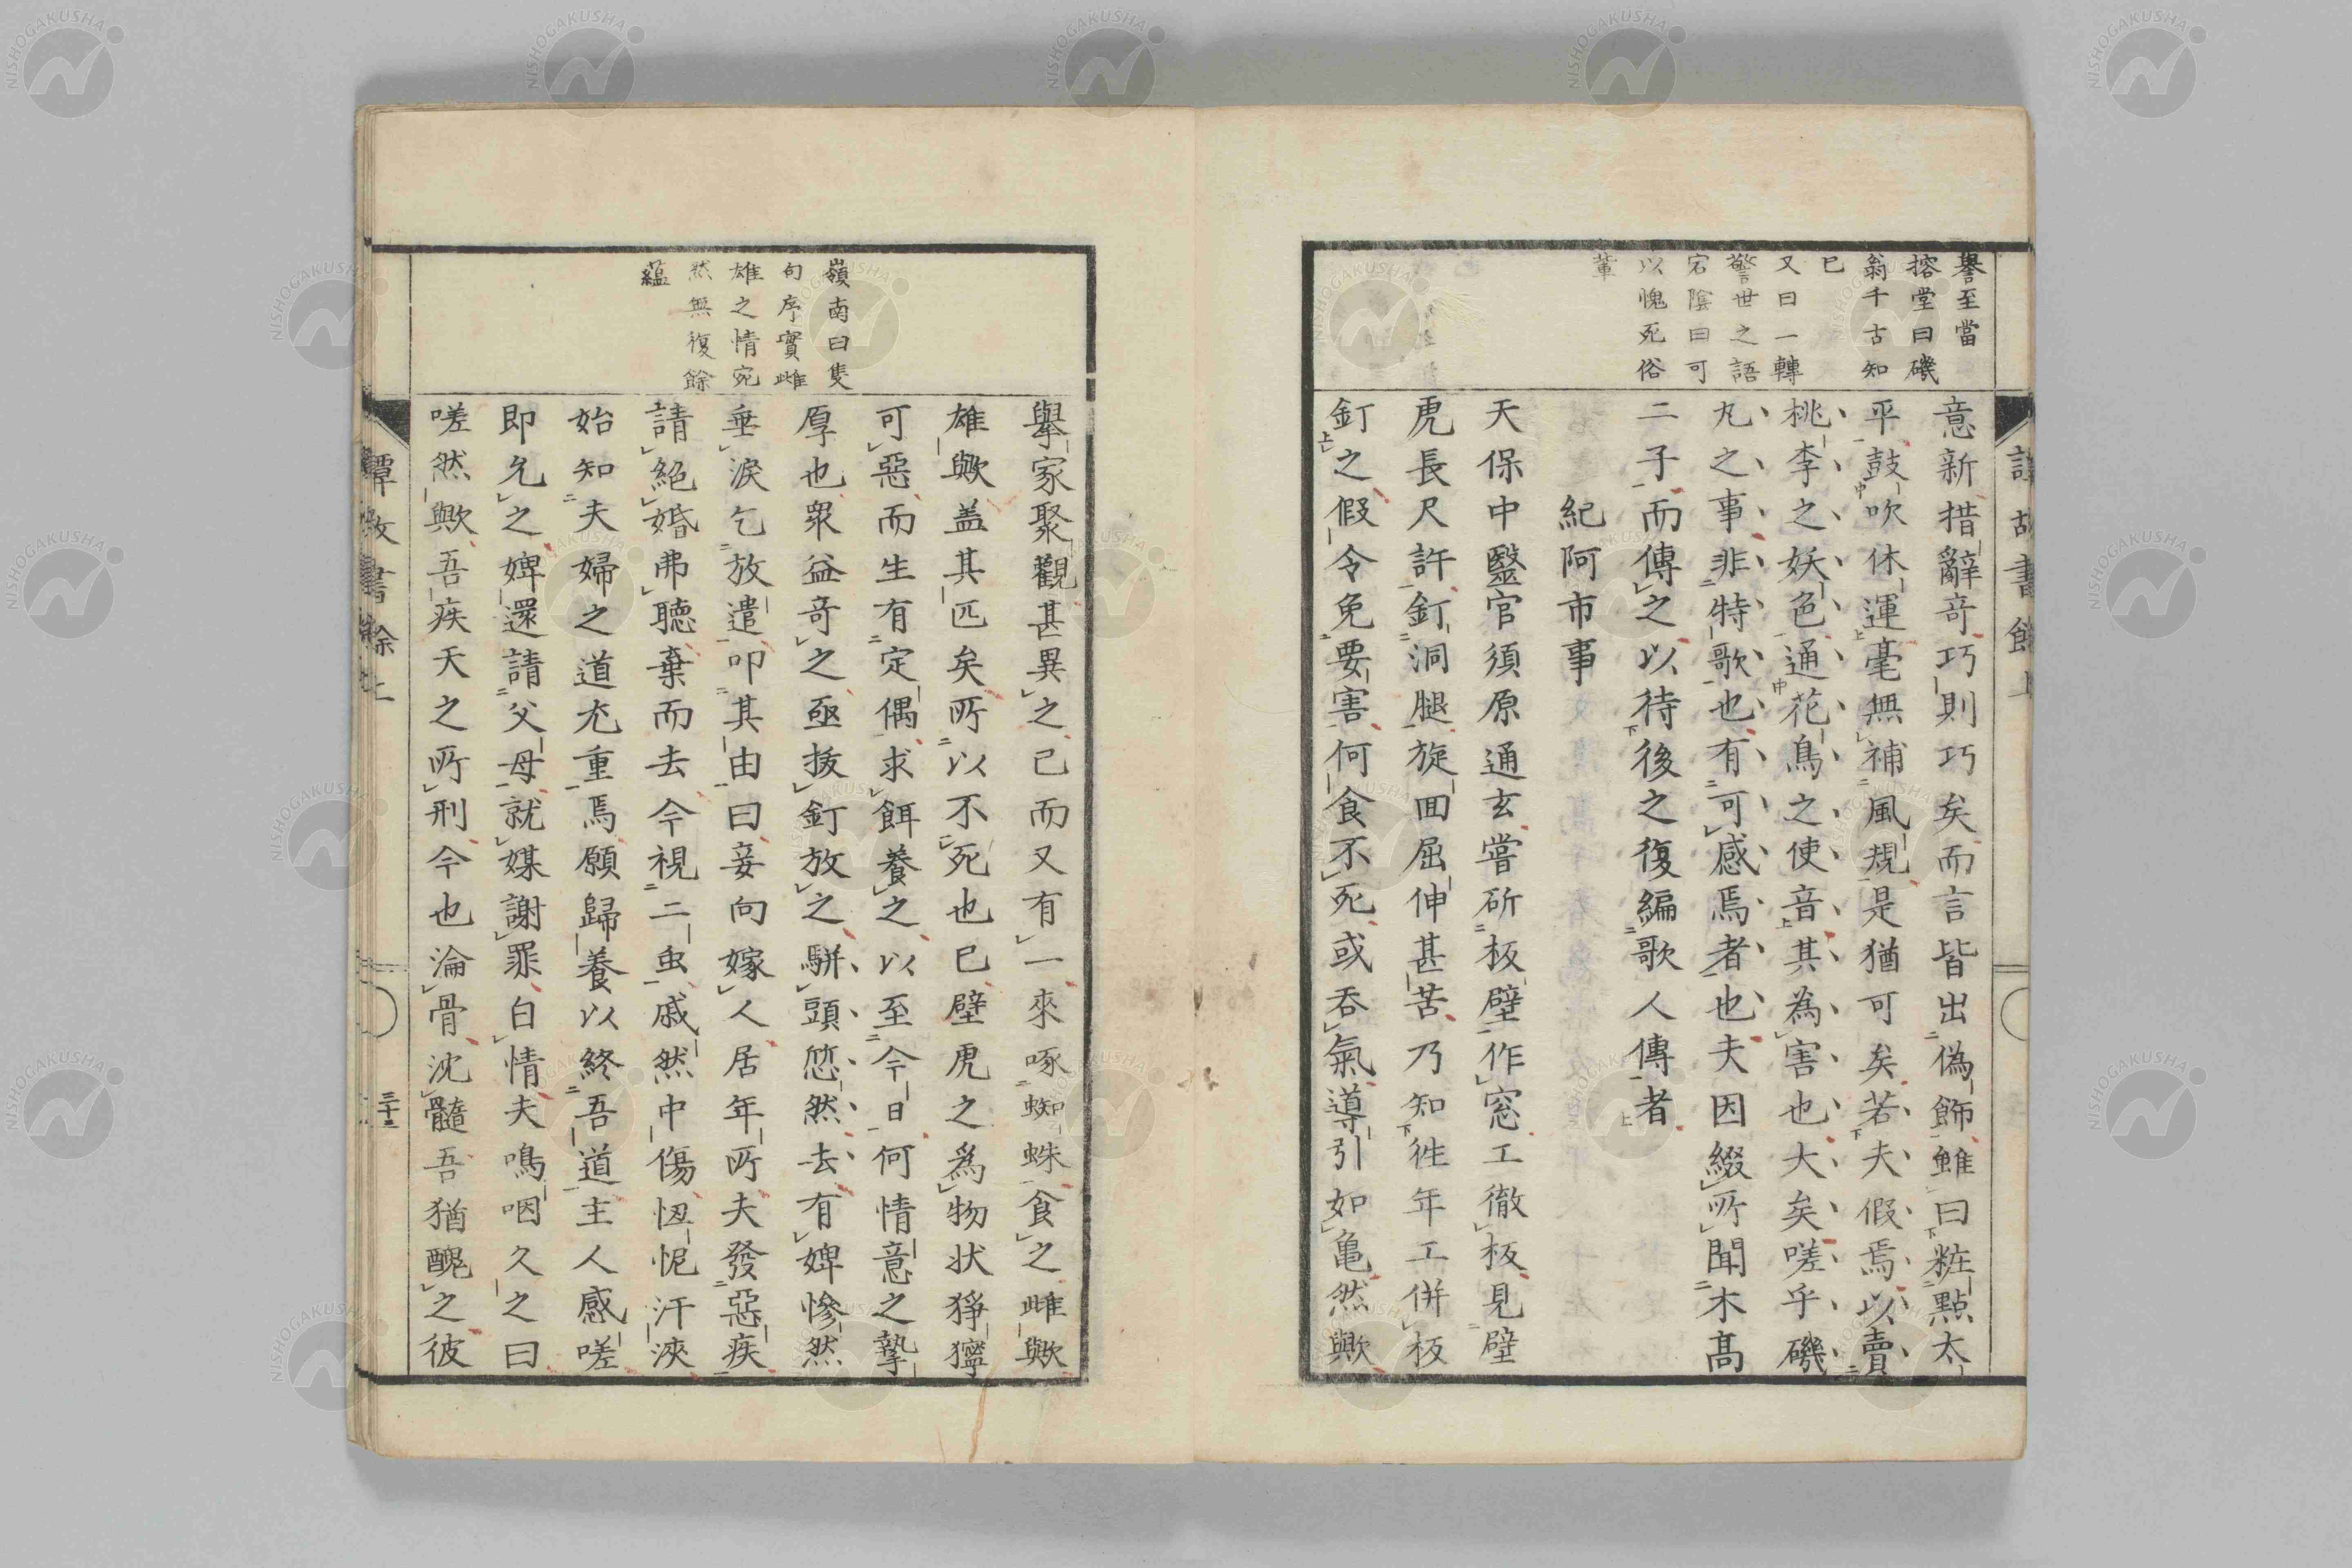 譽至當
搈堂曰磯
翁千古知
已
又曰一轉
警世之語
宕陰曰可
以愧死俗
輩
意新措辭奇巧則巧矣而言皆出偽飾雖曰粧點太
平鼓吹休運毫無補風規是猶可矣若夫假焉以賣
桃李之妖色通花鳥之使音其為害也大矣嗟乎磯
九之事非特歌也有可感焉者也夫因綴所聞木高
二子而傳之以待後之復編歌人傳者
紀阿市事
天保中醫官須原通玄嘗斫板壁作窓工徹板見壁
虎長尺許釘洞腿旋囬屈伸甚苦乃知徃年工併板
釘之假令免要害何食不死或吞氣導引如亀然歟
嶺南曰隻
句序實雌
雄之情宛
然無復餘
蘊
舉家聚觀甚異之已而又有一來啄蜘蛛食之雌歟
雄歟盖其匹矣所以不死也已壁虎之爲物狀猙獰
可惡而生有定偶求餌養之以至今日何情意之摯
厚也衆益竒之亟拔釘放之駢頭怹然去有婢慘然
垂淚乞放遣叩其由曰妾向嫁人居年所夫發惡疾
請絕婚弗聽棄而去今視二虫戚然中傷忸怩汗浹
始知夫婦之道尤重焉願歸養以終吾道主人感嗟
即允之婢還請父母就媒謝罪白情夫鳴咽久之曰
嗟然歟吾疾天之所刑今也淪骨沈髓吾猶醜之彼
三十三